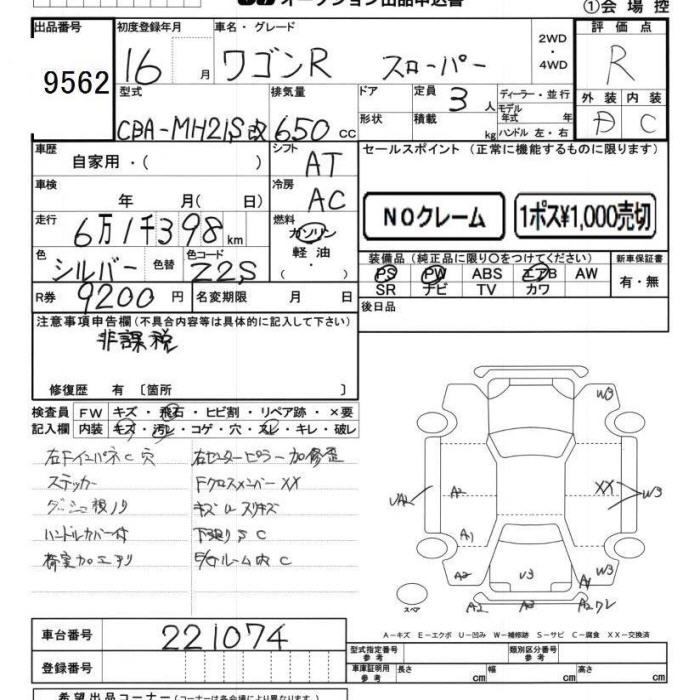 オークション出品申込書
①会場控
出品番号 初度登録年月 車名・グレード 2WD・4WD 評価点
9562 16 月 ワゴンR スローパー R
型式 排気量 ドア 定員 3 人 ディーラー・並行
外装 内装
CBA-MH21S改 650 cc 形状 積載 kg モデル年式 年 ハンドル 左・右 C
車歴 自家用・( ) シフト AT セールスポイント(正常に機能するものに限ります)
車検 年 月( 日) 冷房 AC
NOクレーム 1ポス¥1,000売切
走行 6万1千398 km 燃料 ガソリン 軽油
色 シルバー 色替 色コード Z2S ・( )
装備品(純正品に限り○をつけてください) 新車保証書
PS PW ABS エアB AW 有・無
SR ナビ TV カワ
R券 9200 円 名変期限 月 日 後日品
注意事項申告欄(不具合内容等は具体的に記入して下さい)
非課税
修復歴 有 〔箇所 〕
検査員 FW キズ・飛石・ヒビ割・リペア跡・×要
記入欄 内装 キズ・汚レ・コゲ・穴・スレ・キレ・破レ
右FインパネC穴 右センターピラー加修歪
ステッカー FクロスメンバーXX
ダッシュ根ノリ キズUスリキズ
ハンドルカバー付 下廻りSC
荷室加工アリ E/Gルーム内C
W3
UA2 A2 XX W3
A1
A2 U3 A4 W3
スペア A2 A3 A2ワレ
A-キズ E-エクボ U-凹み W-補修跡 S-サビ C-腐食 XX-交換済
車台番号 221074
型式指定番号 参考 類別区分番号 参考
登録番号
車庫証明用 参考 長さ cm 幅 cm 高さ cm
希望出品コーナー(コーナーは各会場により異なります)